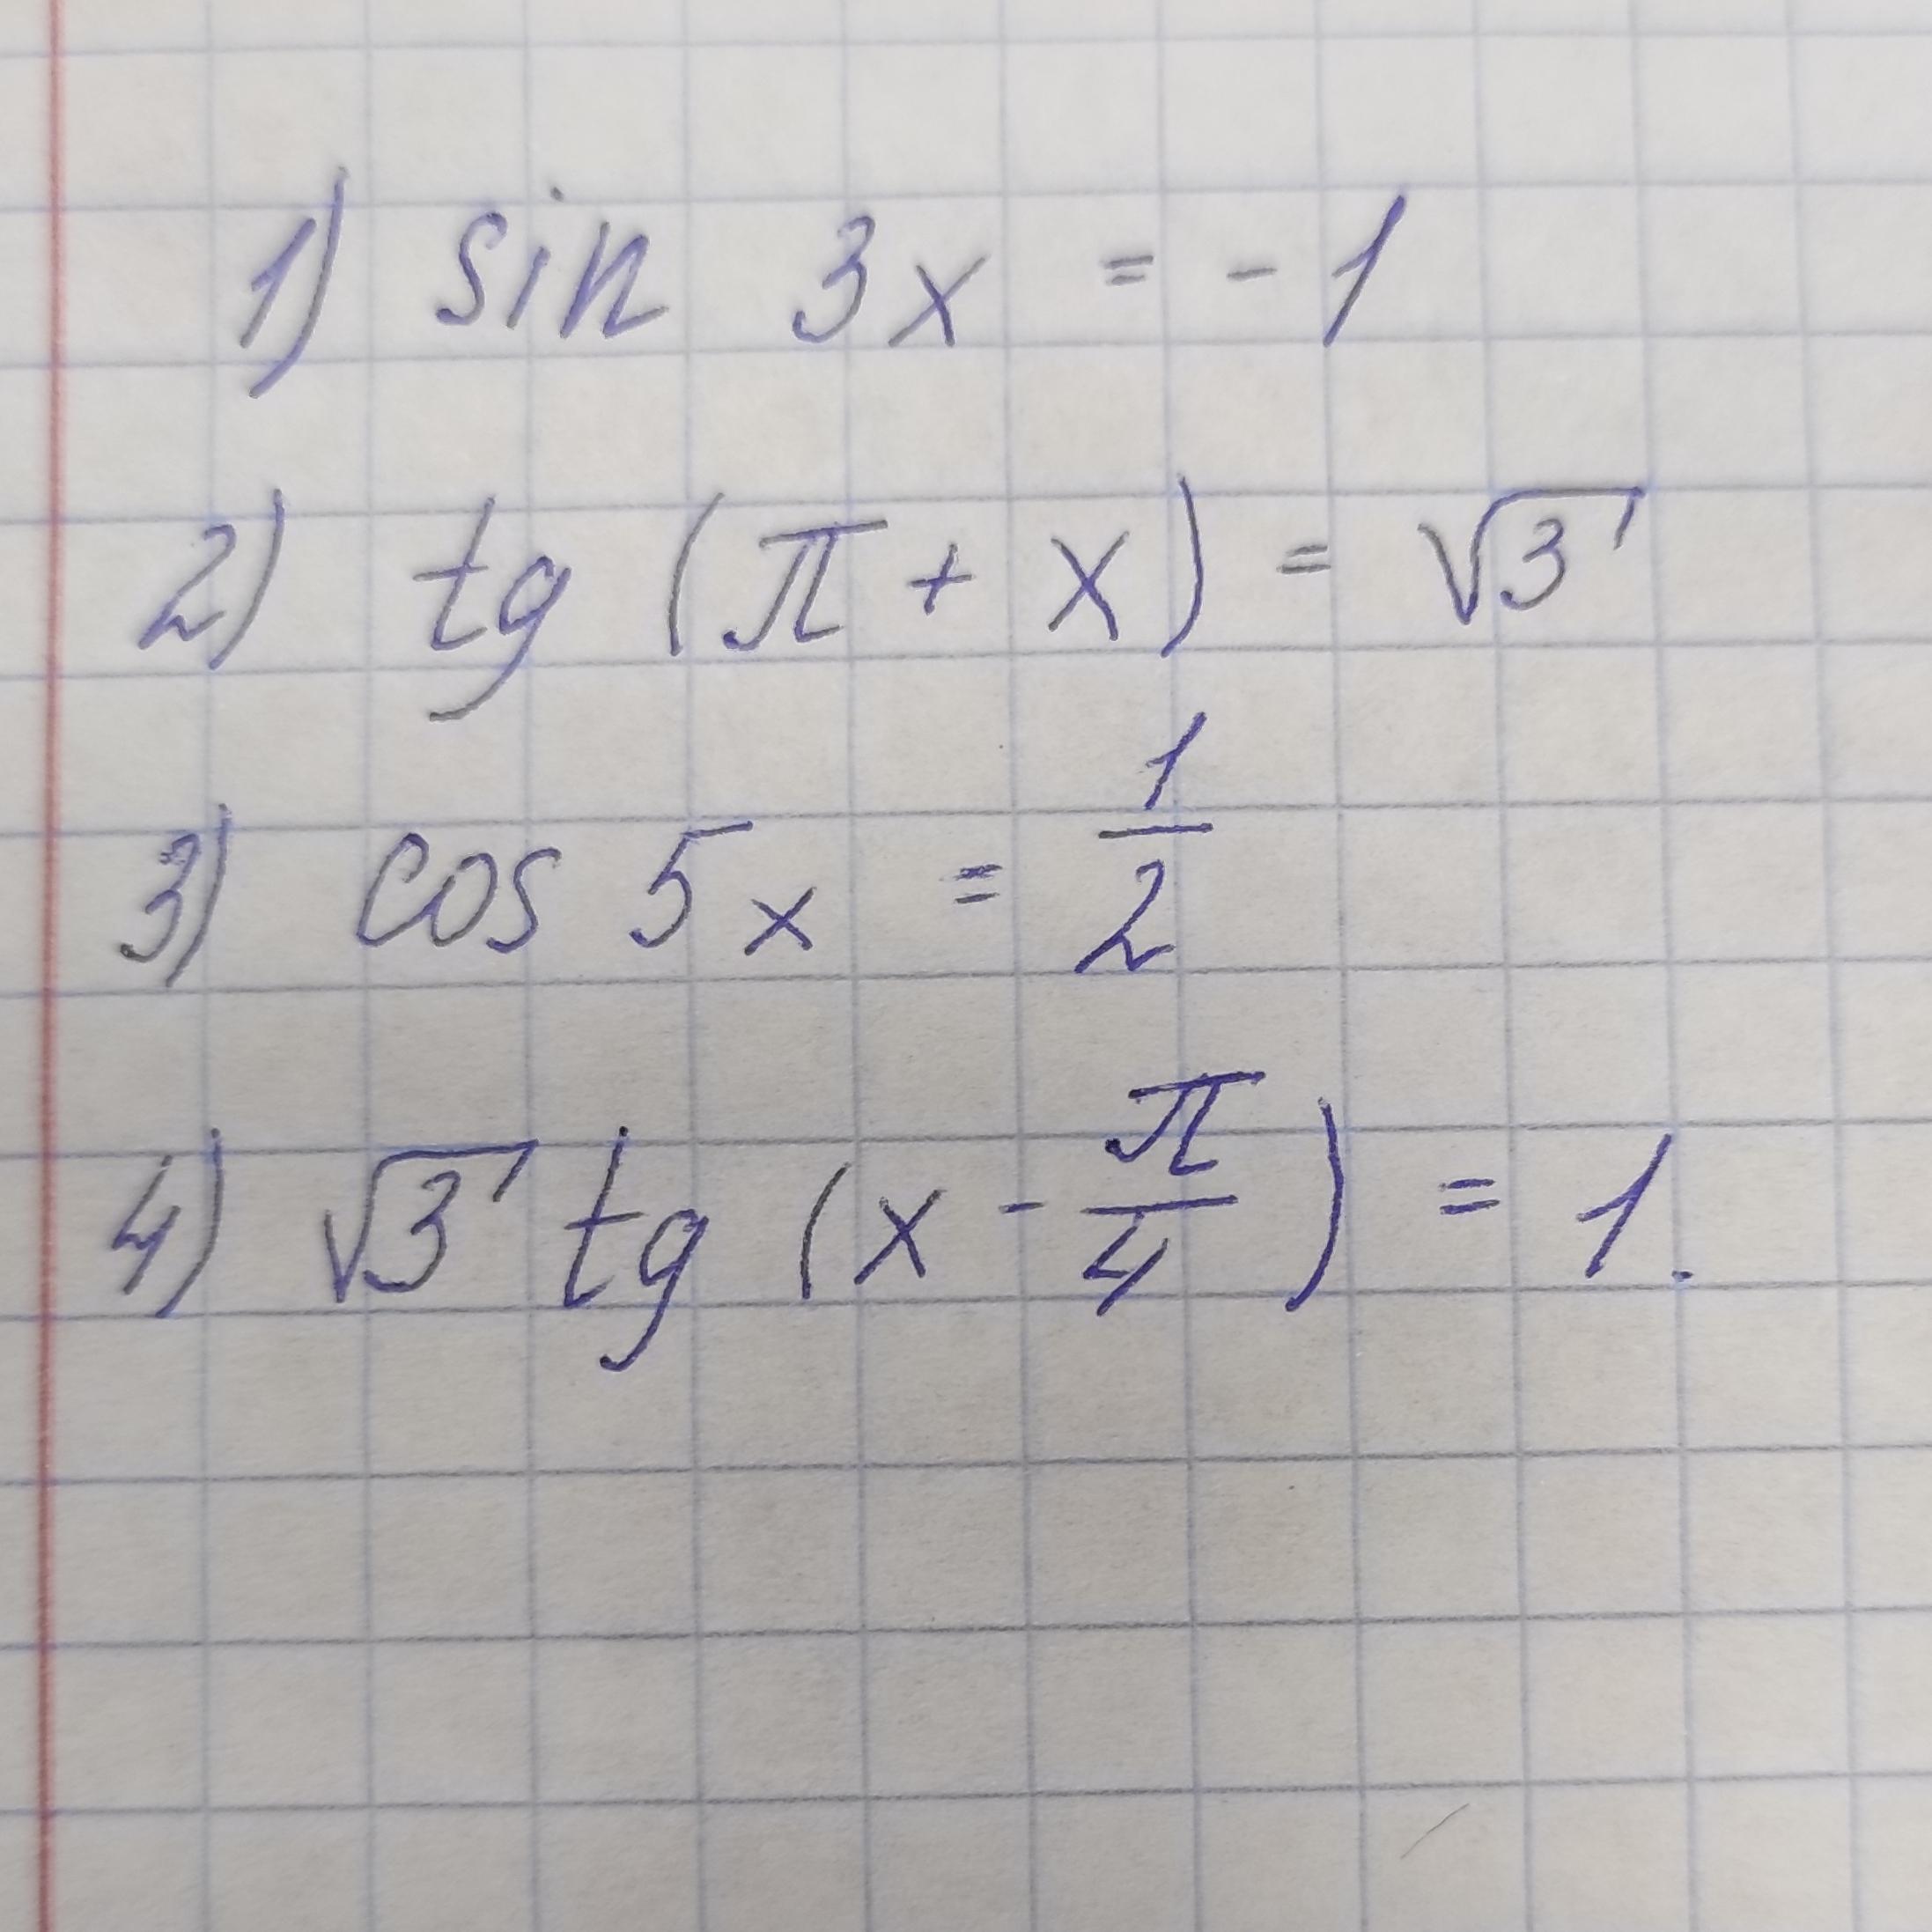 1) sin 3x = -1
2) tg (π + x) = √3
3) cos 5x = 1/2
4) √3 tg (x - π/4) = 1.